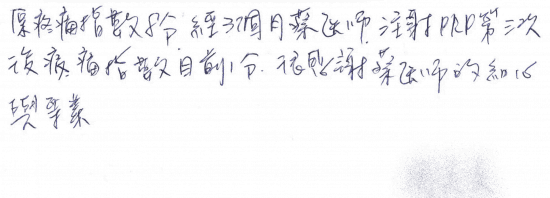 原疼痛指數8分 經3個月蔡医师注射PRP第三次
後疼痛指數目前1分. 很感謝蔡医师的細心
與專業